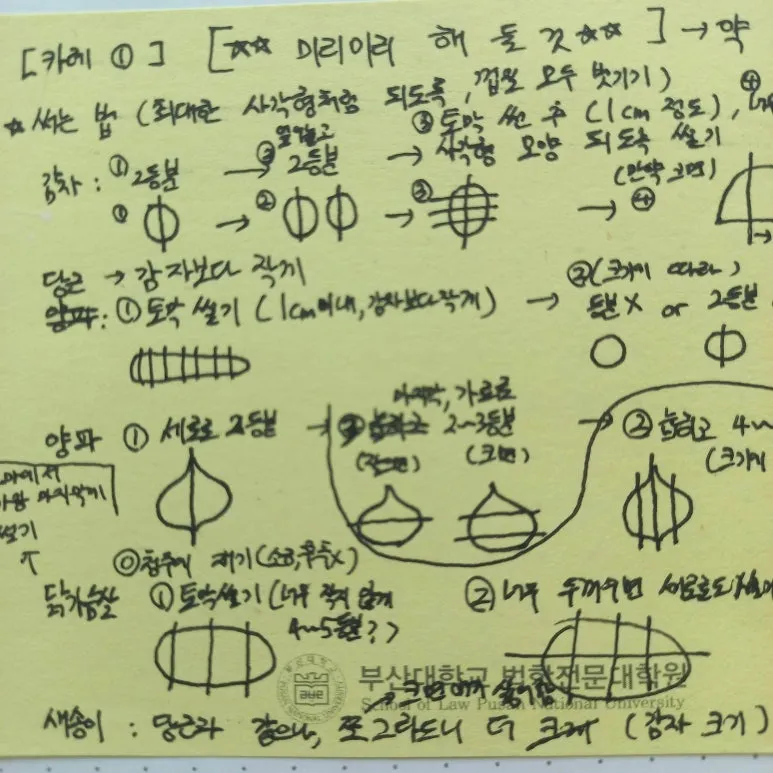 [카레 ①] [☆☆ 미리미리 해 둘 것 ☆☆] → 약
☆ 써는 법 (최대한 사각형처럼 되도록, 껍질 모두 벗기기)
감자 : ① 2등분 → ② 2등분 → ③ 토막 썬 후 (1cm 정도), ④
사각형 모양 되도록 썰기
(만약 크면)
① → ② → ③ → ④
당근 → 감자보다 작게
양파 : ① 토막 썰기 (1cm 이내, 감자보다 작게) → ② (크기에 따라)
등분X or 2등분
양파 ① 세로로 2등분 → 마지막, 가로로 2~3등분 → ② 눕히고 4~
(작으면) (크면) (크기에
마지막에
썰기
↑
닭가슴살 ① 토막썰기 (너무 작지 않게 ② 너무 두꺼우면 세로로도
4~5등분?)
부산대학교 법학전문대학원
School of Law Pusan National University
새송이 : 당근과 같으나, 쪼그라드니 더 크게 (감자 크기)